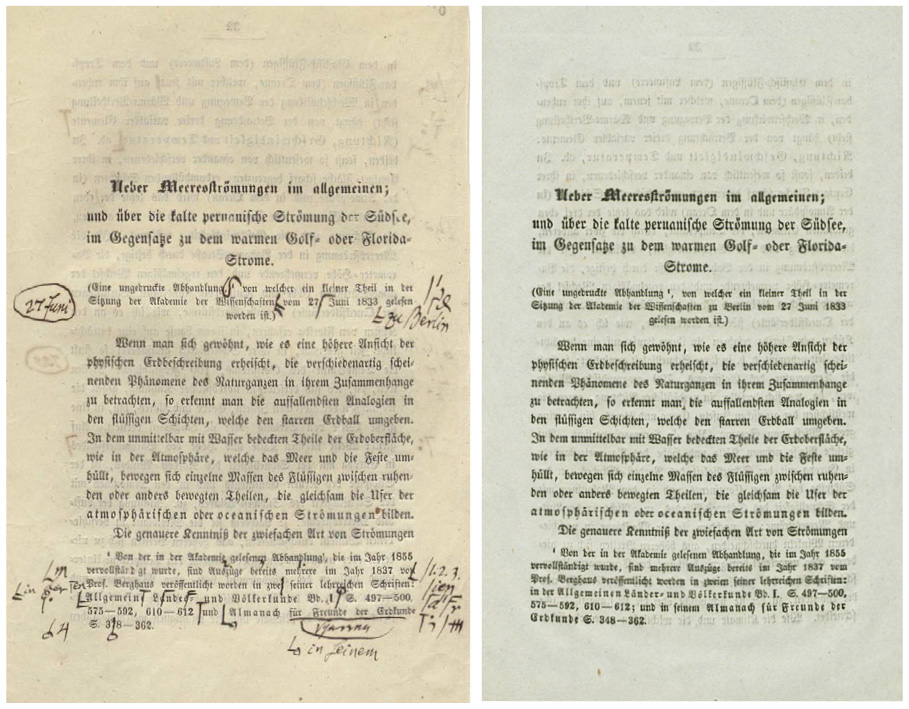 Ueber Meeresströmungen im allgemeinen;
und über die kalte peruanische Strömung der Südsee,
im Gegensatze zu dem warmen Golf- oder Florida-
Strome.
(Eine ungedruckte Abhandlung von welcher ein kleiner Theil in der
Sitzung der Akademie der Wissenschaften vom 27 Juni 1833 gelesen
worden ist.)
27 Juni
zu Berlin
Wenn man sich gewöhnt, wie es eine höhere Ansicht der
physischen Erdbeschreibung erheischt, die verschiedenartig schei-
nenden Phänomene des Naturganzen in ihrem Zusammenhange
zu betrachten, so erkennt man die auffallendsten Analogien in
den flüssigen Schichten, welche den starren Erdball umgeben.
In dem unmittelbar mit Wasser bedeckten Theile der Erdoberfläche,
wie in der Atmosphäre, welche das Meer und die Feste um-
hüllt, bewegen sich einzelne Massen des Flüssigen zwischen ruhen-
den oder anders bewegten Theilen, die gleichsam die Ufer der
atmosphärischen oder oceanischen Strömungen bilden.
Die genauere Kenntniß der zwiefachen Art von Strömungen
¹ Von der in der Akademie gelesenen Abhandlung, die im Jahr 1855
vervollständigt wurde, sind Auszüge bereits mehrere im Jahr 1837 von
Prof. Berghaus veröffentlicht worden in zwei seiner lehrreichen Schriften:
Allgemeine Länder und Völkerkunde Bd. I S. 497—500,
575—592, 610—612 und Almanach für Freunde der Erdkunde
S. 348—362.
in
1.2.3.
64
in seinem
Ueber Meeresströmungen im allgemeinen;
und über die kalte peruanische Strömung der Südsee,
im Gegensatze zu dem warmen Golf- oder Florida-
Strome.
(Eine ungedruckte Abhandlung ¹, von welcher ein kleiner Theil in der
Sitzung der Akademie der Wissenschaften zu Berlin vom 27 Juni 1833
gelesen worden ist.)
Wenn man sich gewöhnt, wie es eine höhere Ansicht der
physischen Erdbeschreibung erheischt, die verschiedenartig schei-
nenden Phänomene des Naturganzen in ihrem Zusammenhange
zu betrachten, so erkennt man die auffallendsten Analogien in
den flüssigen Schichten, welche den starren Erdball umgeben.
In dem unmittelbar mit Wasser bedeckten Theile der Erdoberfläche,
wie in der Atmosphäre, welche das Meer und die Feste um-
hüllt, bewegen sich einzelne Massen des Flüssigen zwischen ruhen-
den oder anders bewegten Theilen, die gleichsam die Ufer der
atmosphärischen oder oceanischen Strömungen bilden.
Die genauere Kenntniß der zwiefachen Art von Strömungen
¹ Von der in der Akademie gelesenen Abhandlung, die im Jahr 1855
vervollständigt wurde, sind mehrere Auszüge bereits im Jahr 1837 vom
Prof. Berghaus veröffentlicht worden in zweien seiner lehrreichen Schriften:
in der Allgemeinen Länder- und Völkerkunde Bd. I. S. 497—500,
575—592, 610—612; und in seinem Almanach für Freunde der
Erdkunde S. 348—362.